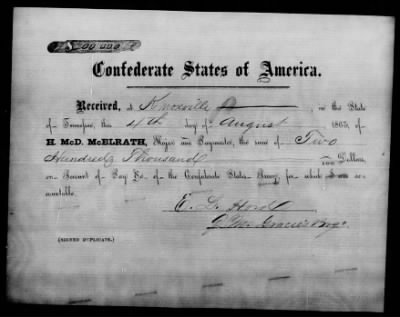 Confederate States of America.
Received, at Knoxville, in the State
of Tennessee, this 4th day of August 1863, of
H. McD. McELRATH, Major and Paymaster, the sum of Two
Hundred Thousand 100 Dollars,
on Account of Pay &c. of the Confederate States Army, for which I am ac-
countable.
E. L. Hord
(SIGNED DUPLICATE.)